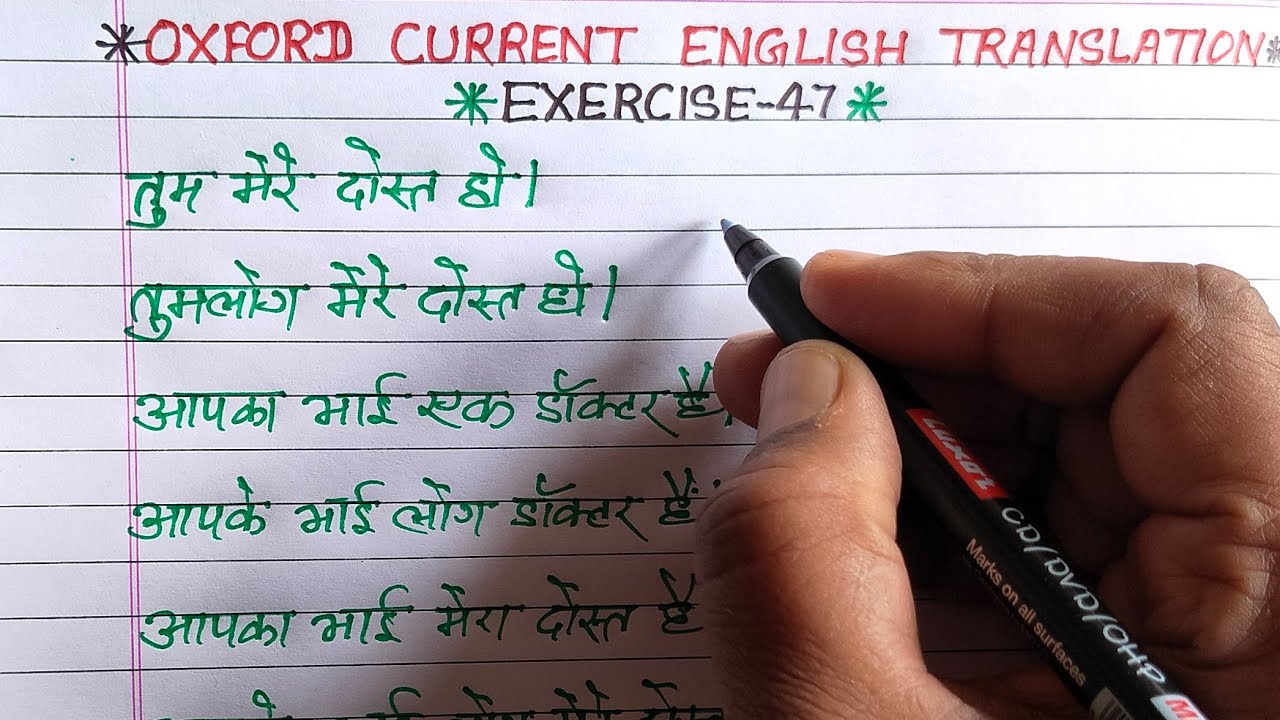 *OXFORD CURRENT ENGLISH TRANSLATION*
*EXERCISE-47*
तुम मेरे दोस्त हो।
तुमलोग मेरे दोस्त हो।
आपका भाई एक डॉक्टर है।
आपके भाई लोग डॉक्टर हैं
आपका भाई मेरा दोस्त है
लोग मेरे
LUXOR
CD/DVD/OHP
Marks on all surfaces